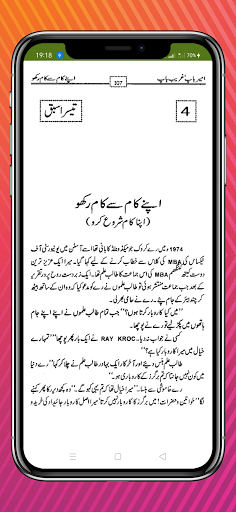 19:18
70%
اپنے کام سے کام رکھو
107
امیر باپ غریب باپ
تیسرا سبق
4
اپنے کام سے کام رکھو
(اپنا کام شروع کرو)
1974 میں رے کروک جو میکڈونلڈ کا بانی تھا اسے آسٹن میں یونیورسٹی آف
ٹیکساس کی MBA کی کلاس سے خطاب کرنے کے لیے کہا گیا۔ میرا ایک عزیز ترین
دوست کیتھ MBA کی اس جماعت کا طالب علم تھا۔ ایک زبردست روح پرور تقریر
کے بعد جب جماعت منتشر ہوئی تو طالب علموں نے رے کو مدعو کیا کہ وہ ان کے ساتھ بیٹھ
کر چند بیئر کے جام پئے۔ رے نے حامی بھر لی۔
”میں کیا کاروبار کرتا ہوں؟“ جب تمام طالب علموں نے اپنے اپنے جام
ہاتھوں میں پکڑ لیے تو رے نے پوچھا۔
کسی نے جواب نہ دیا۔ RAY KROC نے ایک بار پھر پوچھا ”تمہارے
خیال میں میرا کاروبار کیا ہے؟“
طالب علم ہنس دیئے اور آخر کار ایک بہادر طالب علم نے چلا کر کہا ”رے دنیا
میں کون نہیں جانتا کہ تم برگرز کے کاروبار میں ہو۔“
رے خاموشی سے ہنسا۔ ”میرا خیال تھا کہ تم یہی کہو گے۔“ وہ کچھ دیر رکا پھر کہنے
لگا ”خواتین و حضرات! میں برگرز کا کاروبار نہیں کرتا میرا اصل کاروبار جائیداد کی خرید و